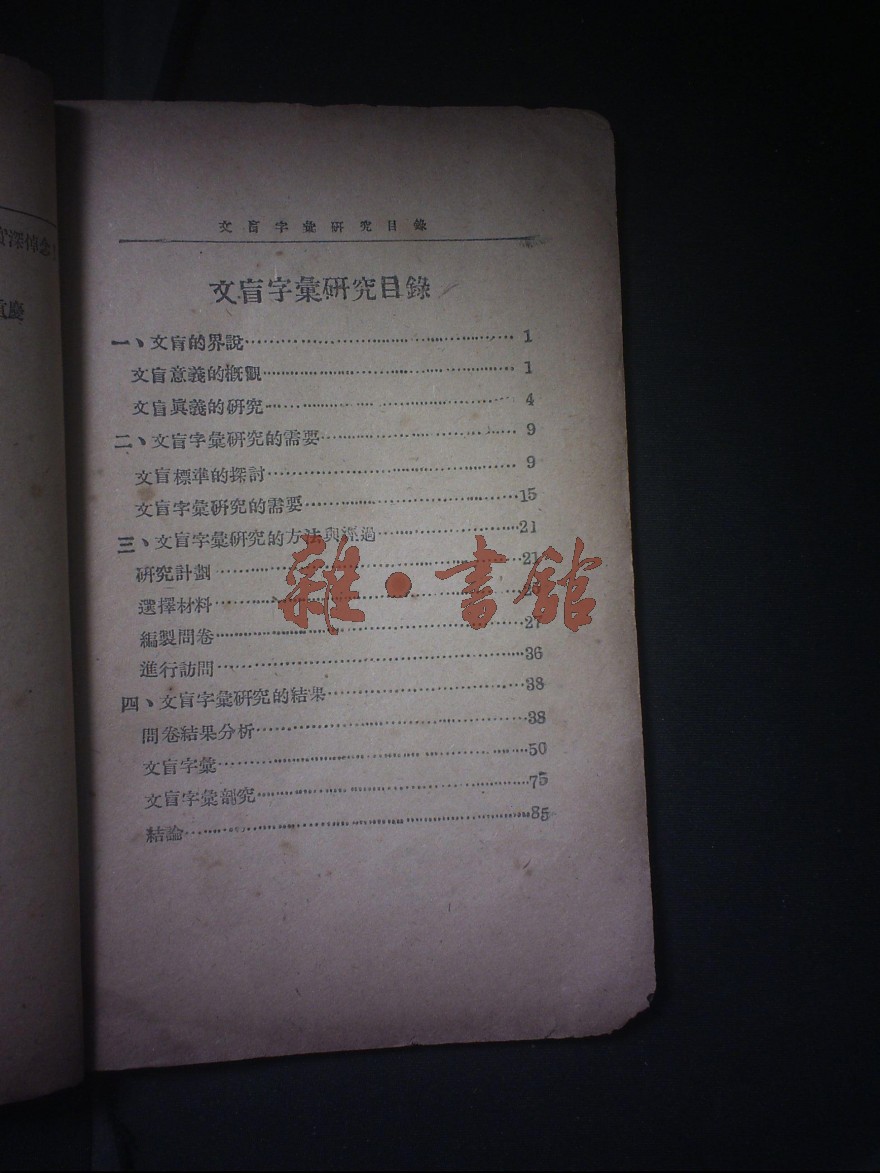 文盲字彙硏究目錄
文盲字彙硏究目錄
一、文盲的界說 1
文盲意義的槪觀 1
文盲眞義的硏究 4
二、文盲字彙硏究的需要 9
文盲標準的探討 9
文盲字彙硏究的需要 15
三、文盲字彙硏究的方法與經過 21
硏究計劃 21
選擇材料 25
編製問卷 27
進行訪問 36
四、文盲字彙硏究的結果 38
問卷結果分析 38
文盲字彙 50
文盲字彙剖究 75
結論 85
雜·書館
深悼念
慶